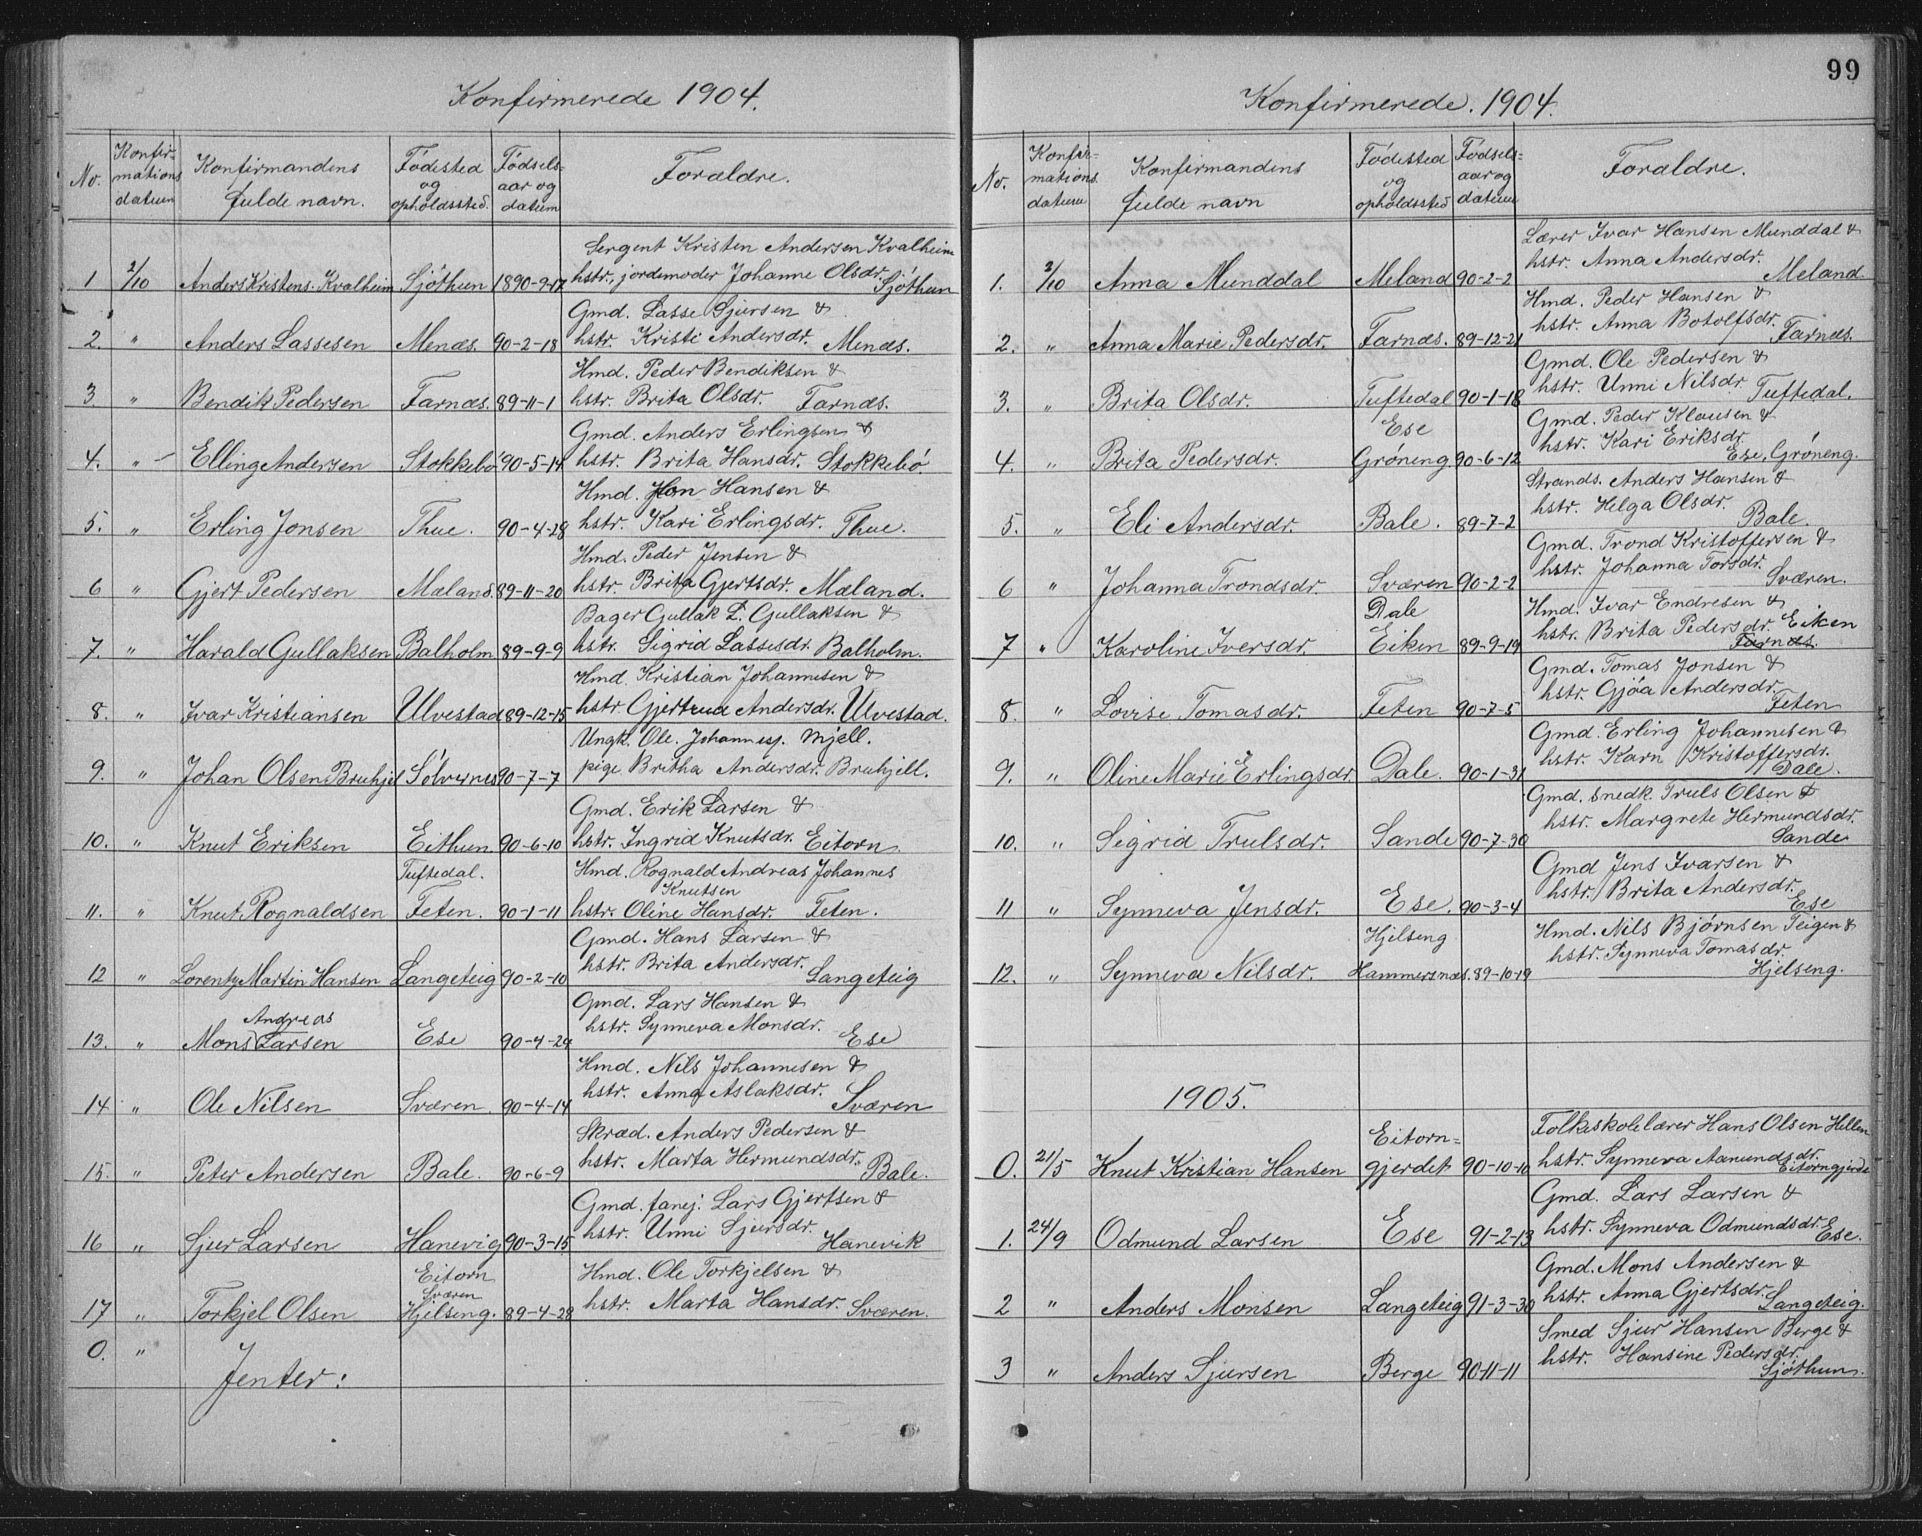 Konfirmerede 1904.
No. Konfir-mations datum Konfirmandens fulde navn. Fødested og opholdssted. Fødsels-aar og datum Forældre.
Sergent Kristen Andersen Kvalheim
1 2/10 Anders Kristens. Kvalheim Sjøthun 1890-9-17 hstr., jordemoder Johanne Olsdr. Sjøthun
Gmd. Lasse Sjursen &
2. " Anders Lassesen Menæs. 90-2-18 hstr Kristi Andersdr. Menæs.
Hmd. Peder Bendiksen &
3 " Bendik Pedersen Farnæs. 89-11-1 hstr. Brita Olsdr. Farnæs.
Gmd. Anders Erlingsen &
4. " Elling Andersen Stokkebø 90-5-14 hstr. Brita Hansdr. Stokkebø
Hmd. Jon Hansen &
5. " Erling Jonsen Thue. 90-4-28 hstr. Kari Erlingsdr. Thue.
Hmd. Peder Jensen &
6 " Gjert Pedersen Mæland. 89-11-20 hstr. Brita Gjertsdr. Mæland.
Bager Gullak I. Gullaksen &
7. " Harald Gullaksen Balholm 89-9-9 hstr. Sigrid Lassesdr. Balholm.
Hmd. Kristian Johannesen &
8. " Ivar Kristiansen Ulvestad 89-12-15 hstr. Gjertrud Andersdr. Ulvestad.
Ungk. Ole. Johannesj. Mjell.
9. " Johan Olsen Bruhjel Sølvsnes 90-7-7 pige Britha Andersdr. Bruhjell.
Gmd. Erik Larsen &
10. " Knut Eriksen Eithun 90-6-10 hstr. Ingrid Knutsdr. Eitorn.
Tuftedal. Hmd. Rognald Andreas Johannes
Knutsen
11. " Knut Rognaldsen Feten. 90-1-11 hstr. Oline Hansdr. Feten.
Gmd. Hans Larsen &
12 " Lorentz Martin Hansen Langeteig 90-2-10 hstr. Brita Andersdr. Langeteig
Gmd. Lars Hansen &
Andreas
13. " Mons Larsen Ese 90-4-24 hstr. Synneva Monsdr. Ese
Hmd. Nils Johannesen &
14 " Ole Nilsen Sværen. 90-4-14 hstr. Anna Aslaksdr. Sværen
Skræd. Anders Pedersen &
15. " Peter Andersen Bale. 90-6-9 hstr. Marta Hermundsdr. Bale.
Gmd. fanej. Lars Gjertsen &
16 " Sjur Larsen Hanevig 90-3-15 hstr. Unni Sjursdr. Hanevik
Eitorn Hmd. Ole Torkjelsen &
Sværen
17 " Torkjel Olsen Hjelseng. 89-4-28 hstr. Marta Hansdr. Sværen.
0. "
Jenter:
99
Konfirmerede. 1904.
No. Konfir-mations. datum Konfirmandens fulde navn Fødested og opholdssted Fødsels-aar og datum Forældre.
Lærer Ivar Hansen Munddal &
1. 2/10 Anna Munddal Meland 90-2-2 hstr. Anna Andersdr. Meland.
Hmd. Peder Hansen &
2. " Anna Marie Pedersdr. Farnæs. 89-12-21 hstr. Anna Botolfsdr. Farnæs.
Gmd. Ole Pedersen &
3. " Brita Olsdr. Tuftedal 90-1-18 hstr. Unni Nilsdr Tuftedal.
Ese Gmd. Peder Klausen &
4. " Brita Pedersdr. Grøneng. 90-6-12 hstr. Kari Eriksdr. Ese, Grøneng.
Strands. Anders Hansen &
5. " Eli Andersdr. Bale. 89-7-2 hstr. Helga Olsdr. Bale.
Gmd. Trond Kristoffersen &
6 " Johanna Trondsdr. Sværen 90-2-2 hstr. Johanna Torsdr. Sværen.
Dale Hmd. Ivar Endresen &
7 " Karoline Iversdr. Eiken 89-9-19 hstr. Brita Pedersdr. Eiken
Farnæs.
Gmd. Tomas Jonsen &
8. " Lovise Tomasdr. Feten 90-7-5 hstr. Gjøa Andersdr. Feten
Gmd. Erling Johannesen &
9. " Oline Marie Erlingsdr Dale. 90-1-31 hstr. Karn Kristoffersdr. Dale.
Gmd. snedk. Truls Olsen &
10. " Sigrid Trulsdr. Sande 90-7-30 hstr. Margrete Hermundsdr. Sande
Gmd Jens Ivarsen &
11 " Synneva Jensdr. Ese. 90-3-4 hstr. Brita Andersdr. Ese
Hjelseng Hmd. Nils Bjørnsen Teigen &
12. " Synneva Nilsdr. Hammersnæs. 89-10-19 hstr. Synneva Tomasdr. Hjelseng.
1905.
Eitorn= Folkeskolelærer Hans Olsen Hellen
0. 21/5 Knut Kristian Hansen gjerdet 90-10-10 hstr. Synneva Aamundsdr. Eitorngjerde
Gmd. Lars Larsen &
1. 24/9 Odmund Larsen Ese 91-2-13 hstr. Synneva Odmundsdr. Ese.
Gmd. Mons Andersen &
2 " Anders Monsen Langeteig 91-3-30 hstr. Anna Gjertsdr. Langeteig.
Smed Sjur Hansen Berge &
3 " Anders Sjursen Berge 90-11-11 hstr. Hansine Pedersdr. Sjøthun.